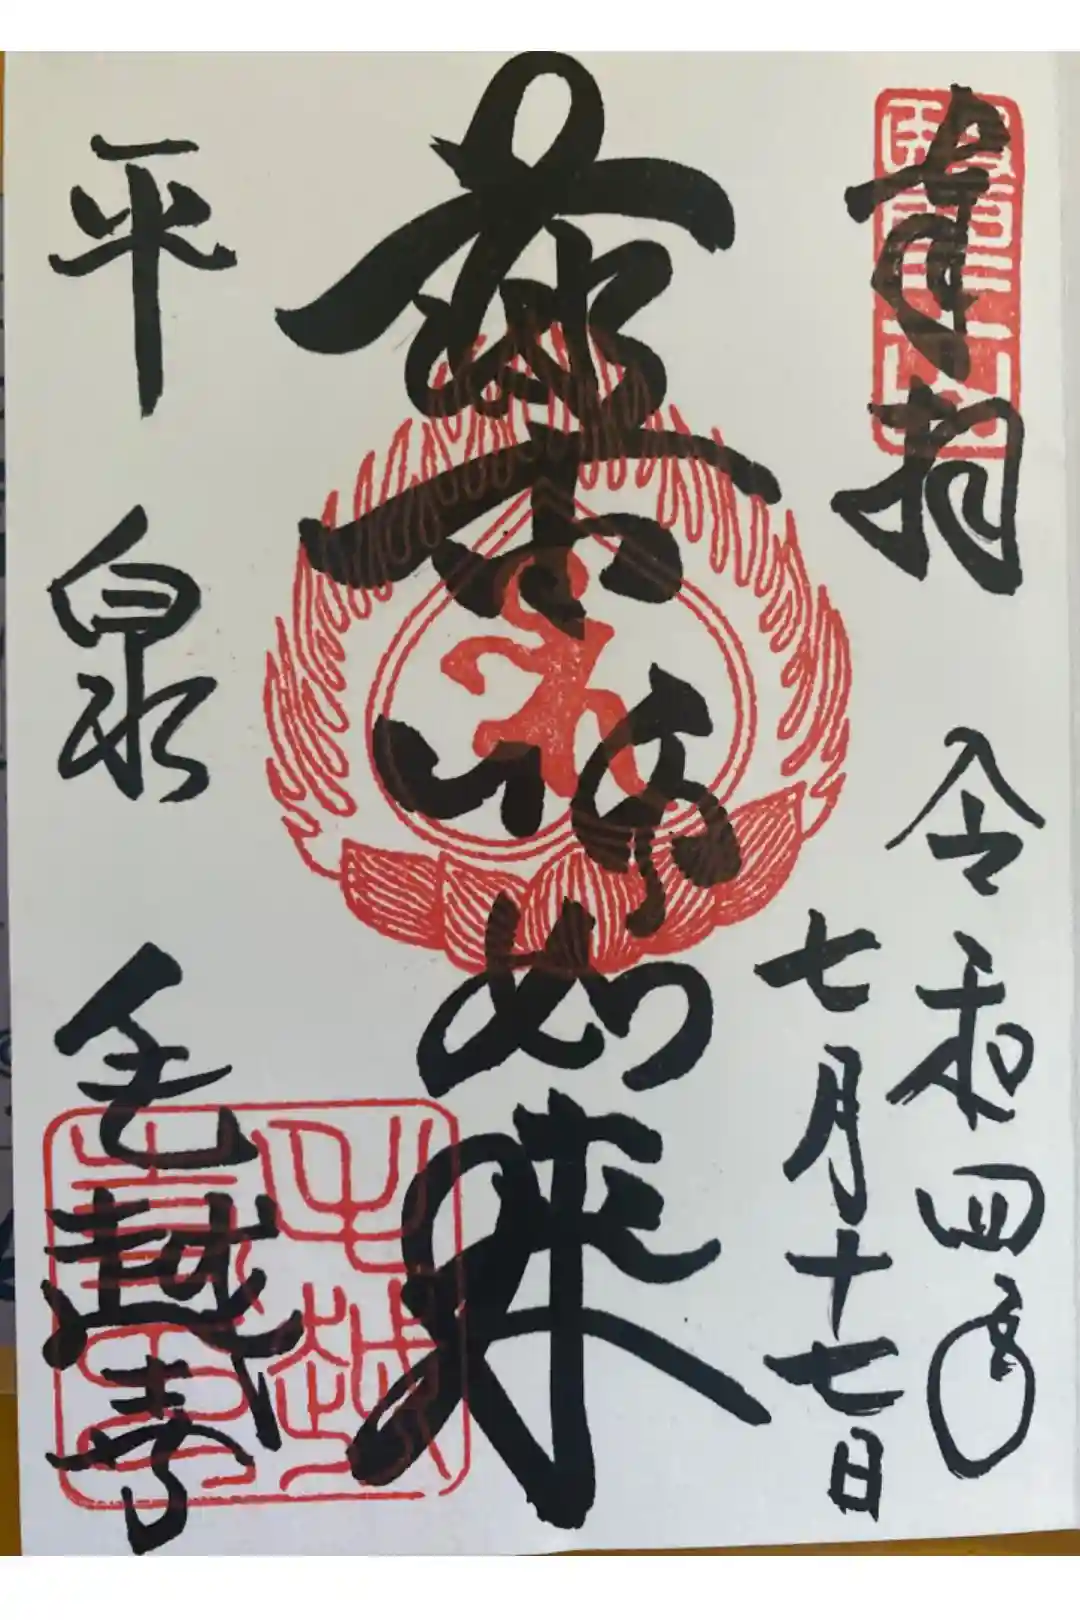 奉拝
令和四年
七月十七日
薬師如来
平泉 毛越寺